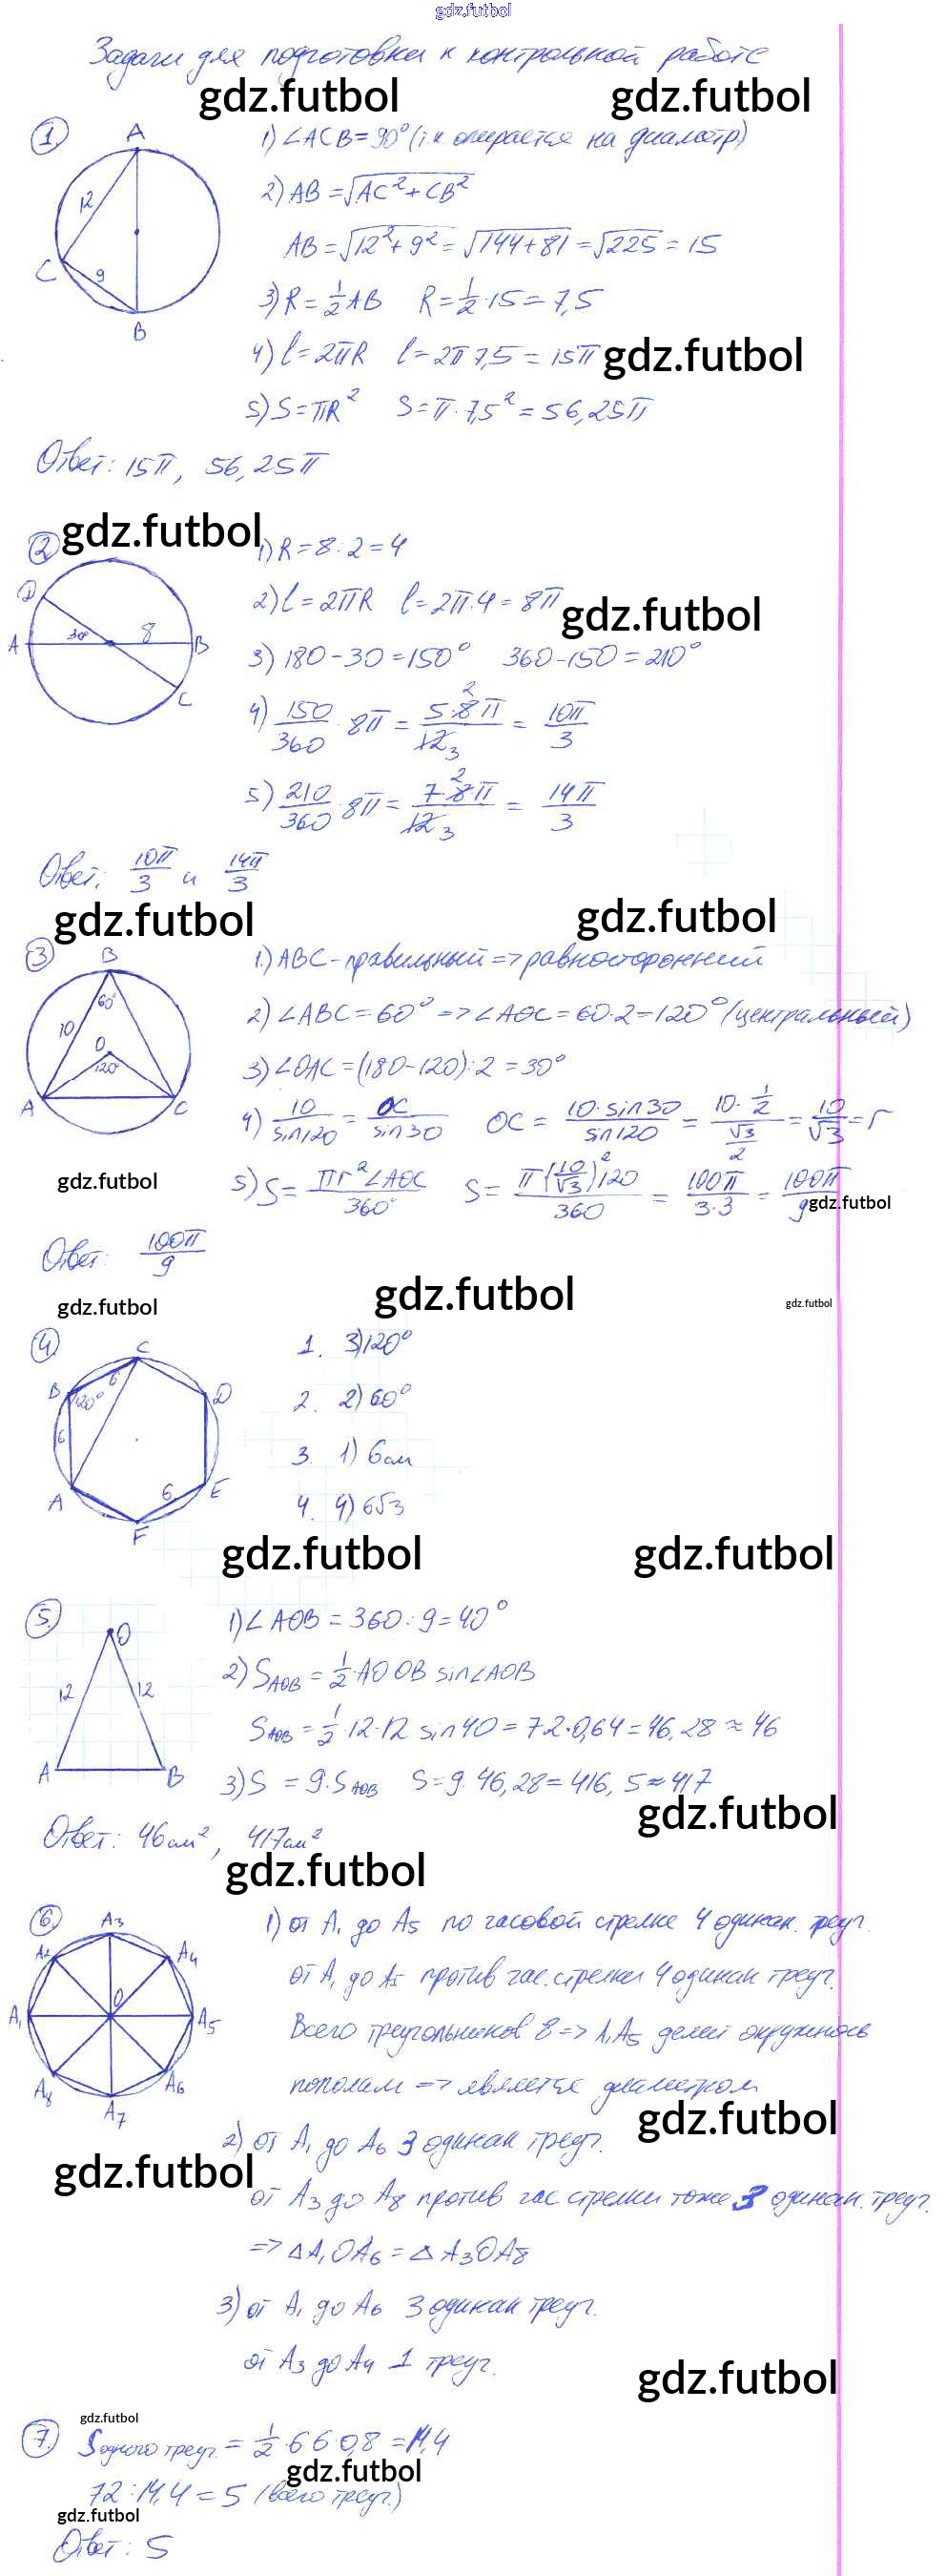 gdz.futbol
Задачи для подготовки к контрольной работе
gdz.futbol gdz.futbol
1
A
12
C
9
B
1) ∠ACB=90° (т.к опирается на диаметр)
2) AB=√AC²+CB²
AB=√12²+9²=√144+81=√225=15
3) R=1/2 AB R=1/2·15=7,5
4) l=2πR l=2π7,5=15π gdz.futbol
5) S=πR² S=π·7,5²=56,25π
Ответ: 15π, 56,25π
2 gdz.futbol
D
A
30°
8
B
C
1) R=8:2=4
2) l=2πR l=2π·4=8π gdz.futbol
3) 180-30=150° 360-150=210°
4) 150/360 · 8π = 5·8π/12 = 10π/3
2
3
5) 210/360 · 8π = 7·8·π/12 = 14π/3
2
3
Ответ: 10π/3 и 14π/3
gdz.futbol gdz.futbol
3
B
60°
10
O
120°
A
C
1.) ABC-правильный => равносторонний
2) ∠ABC=60° => ∠AOC=60·2=120° (центральный)
3) ∠OAC=(180-120):2=30°
4) 10/sin120 = OC/sin30 OC = 10·sin30/sin120 = 10·1/2/√3/2 = 10/√3 = r
gdz.futbol
5) S= πr²∠AOC/360° S= π(10/√3)²120/360 = 100π/3·3 = 100π/9
gdz.futbol
Ответ: 100π/9
gdz.futbol gdz.futbol gdz.futbol
4
C
B
6
120°
D
6
A
6
E
F
1. 3) 120°
2. 2) 60°
3. 1) 6см
4. 4) 6√3
gdz.futbol gdz.futbol
5.
O
12
12
A
B
1) ∠AOB=360:9=40°
2) SAOB = 1/2·AO·OB sin∠AOB
SAOB = 1/2·12·12 sin40=72·0,64=46,28≈46
3) S = 9·SAOB S=9·46,28=416,5≈417
gdz.futbol
Ответ: 46см², 417см²
gdz.futbol
6.
A3
A2
A4
O
A1
A5
A8
A6
A7
1) от A1 до A5 по часовой стрелке 4 одинак. треуг.
от A1 до A5 против час. стрелки 4 одинак треуг.
Всего треугольников 8 => A1A5 делит окружность
пополам => является диаметром
gdz.futbol
2) от A1 до A6 3 одинак треуг.
gdz.futbol
от A3 до A8 против час стрелки тоже 3 одинак. треуг.
=> △A1OA6 = △A3OA8
3) от A1 до A6 3 одинак треуг.
от A3 до A4 1 треуг.
gdz.futbol
gdz.futbol
7. Sодного треуг. = 1/2·6·6·0,8=14,4
gdz.futbol
72:14,4=5 (всего треуг.)
gdz.futbol
Ответ: 5